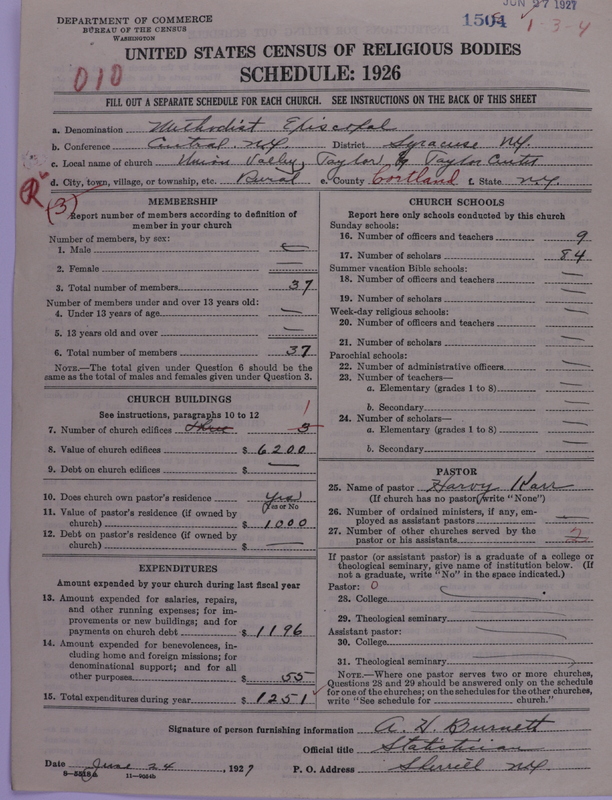 DEPARTMENT OF COMMERCE
BUREAU OF THE CENSUS
WASHINGTON
JUN 27 1927
1504 1-3-4
UNITED STATES CENSUS OF RELIGIOUS BODIES
SCHEDULE: 1926
010
FILL OUT A SEPARATE SCHEDULE FOR EACH CHURCH. SEE INSTRUCTIONS ON THE BACK OF THIS SHEET
a. Denomination Methodist Episcopal
b. Conference Central N.Y. District Syracuse N.Y.
c. Local name of church Union Valley, Taylor & Taylor Center
d. City, town, village, or township, etc. Rural e. County Cortland f. State N.Y.
R (3)
MEMBERSHIP
Report number of members according to definition of member in your church
Number of members, by sex:
1. Male
2. Female —
3. Total number of members 37
Number of members under and over 13 years old:
4. Under 13 years of age —
5. 13 years old and over —
6. Total number of members 37
NOTE.—The total given under Question 6 should be the same as the total of males and females given under Question 3.
CHURCH BUILDINGS
See instructions, paragraphs 10 to 12
7. Number of church edifices three 3 1
8. Value of church edifices $ 6200
9. Debt on church edifices $ —
10. Does church own pastor's residence Yes
Yes or No
11. Value of pastor's residence (if owned by church) $ 1000
12. Debt on pastor's residence (if owned by church) $ —
EXPENDITURES
Amount expended by your church during last fiscal year
13. Amount expended for salaries, repairs, and other running expenses; for improvements or new buildings; and for payments on church debt $ 1196
14. Amount expended for benevolences, including home and foreign missions; for denominational support; and for all other purposes $ 55
15. Total expenditures during year $ 1251
CHURCH SCHOOLS
Report here only schools conducted by this church
Sunday schools:
16. Number of officers and teachers 9
17. Number of scholars 84
Summer vacation Bible schools:
18. Number of officers and teachers —
19. Number of scholars —
Week-day religious schools:
20. Number of officers and teachers —
21. Number of scholars —
Parochial schools:
22. Number of administrative officers —
23. Number of teachers—
a. Elementary (grades 1 to 8) —
b. Secondary —
24. Number of scholars—
a. Elementary (grades 1 to 8) —
b. Secondary —
PASTOR
25. Name of pastor Harvy Karr
(If church has no pastor, write "None")
26. Number of ordained ministers, if any, employed as assistant pastors —
27. Number of other churches served by the pastor or his assistants 2
If pastor (or assistant pastor) is a graduate of a college or theological seminary, give name of institution below. (If not a graduate, write "No" in the space indicated.)
Pastor: 0
28. College
29. Theological seminary
Assistant pastor:
30. College
31. Theological seminary
NOTE.—Where one pastor serves two or more churches, Questions 28 and 29 should be answered only on the schedule for one of the churches; on the schedules for the other churches, write "See schedule for church."
Signature of person furnishing information A. H. Burnett
Official title Statistician
Date June 24, 1927 P. O. Address Sherrill N.Y.
8—5518a 11—9054b